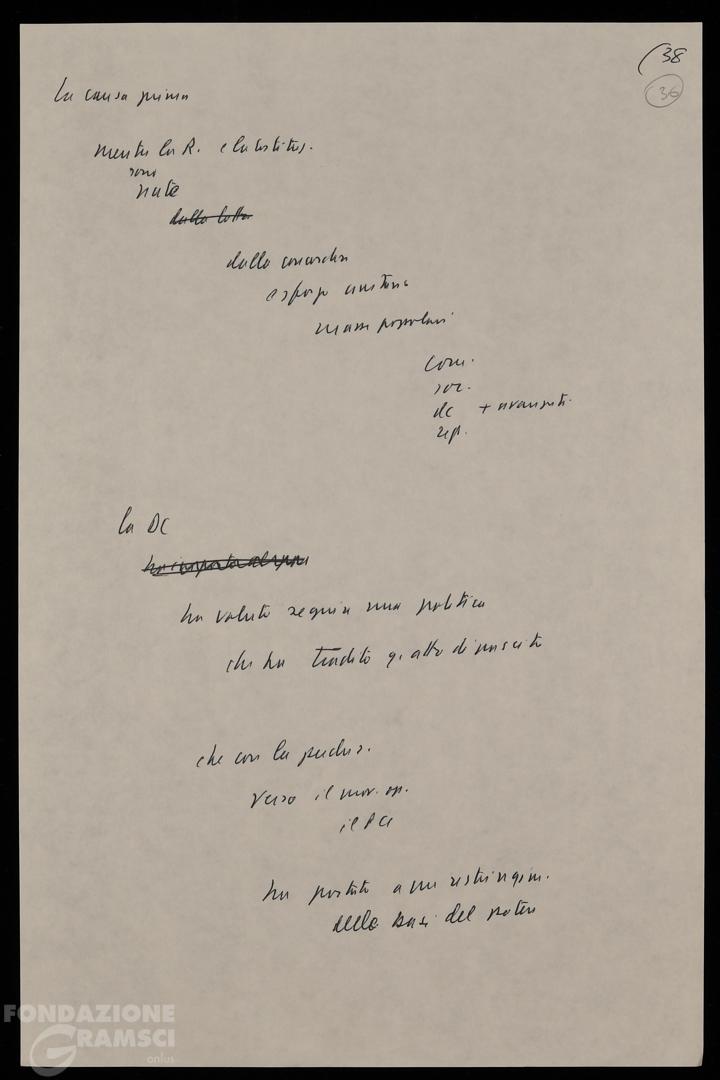 (38
36
La causa prima
mentre la R. e la costituz.
sono
nate
dalla lotta
dalla concordia
e sforzo unitario
masse popolari
com.
soc.
dc + avanguti.
rep.
la DC
ha voluto seguire una politica
che ha tradito q. atto di nascita
che con la preclus.
verso il mov. op.
il PCI
ha portato a un restringim.
delle basi del potere
FONDAZIONE
GRAMSCI
onlus